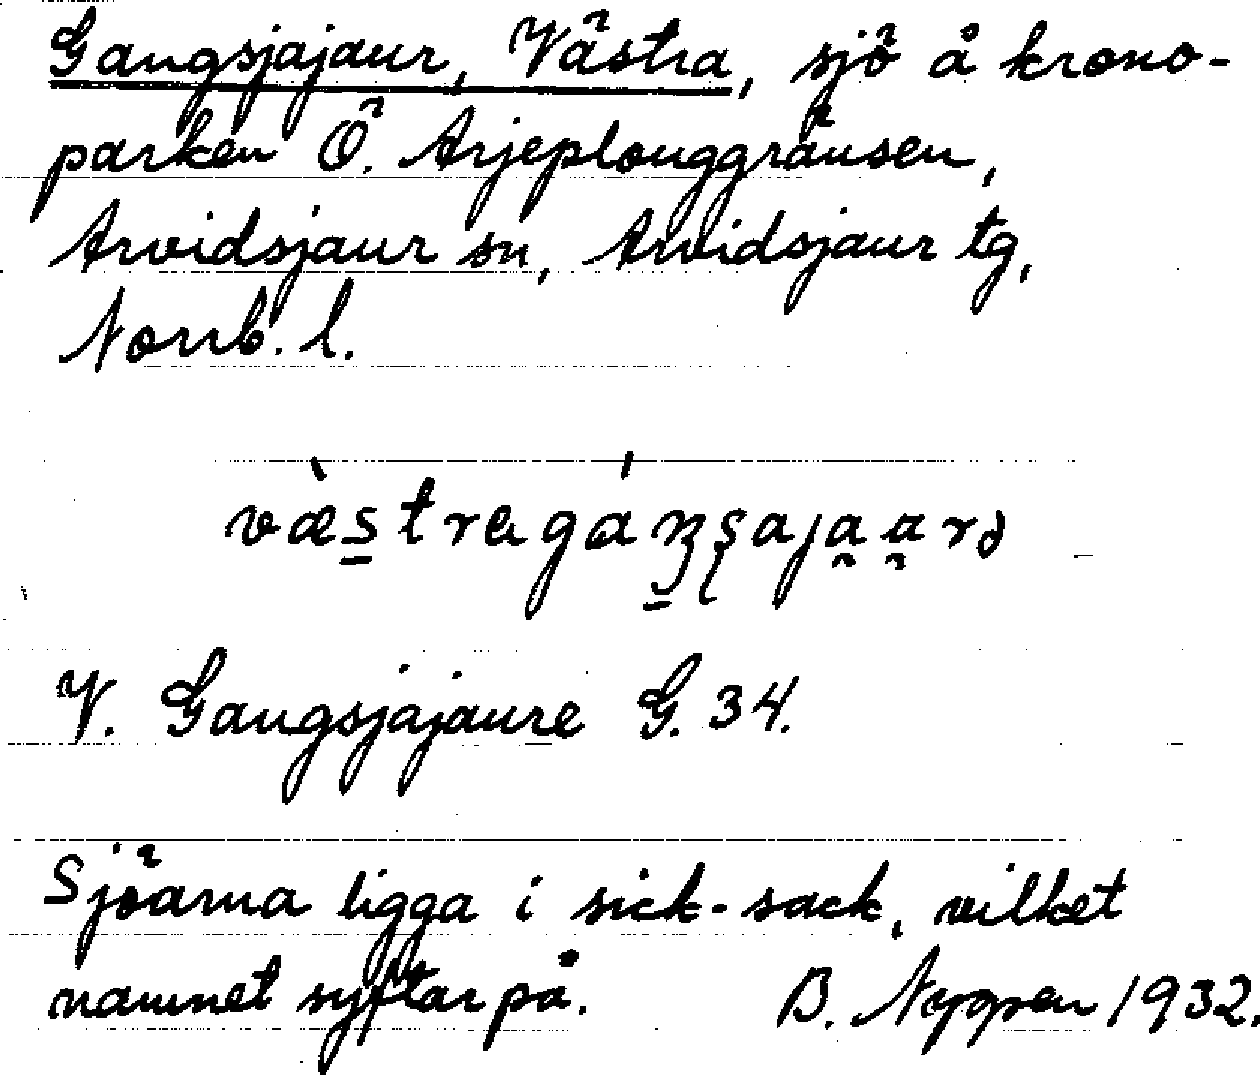 Gangsjajaur, Västra, sjö å krono-
parken Ö. Arjeplouggränsen,
Arvidsjaur sn, Arvidsjaur tg,
Norrb. l.
V. Gangsjajaure G. 34.
Sjöarna ligga i sick-sack, vilket
namnet syftar på. B. Nygren 1932.